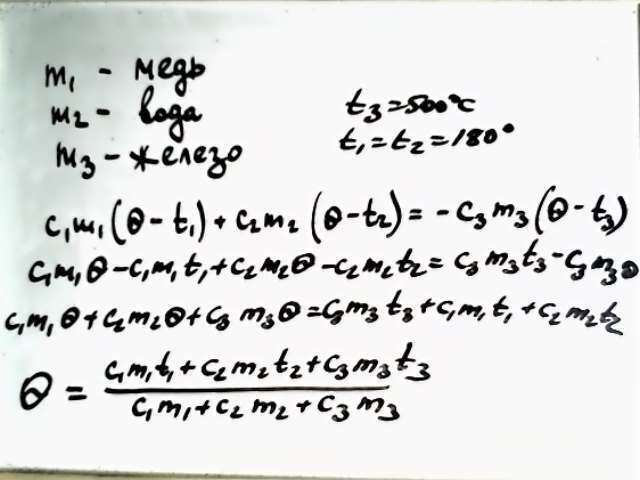 m₁ - медь
m₂ - вода
m₃ - железо
t₃ = 500°C
t₁ = t₂ = 180°
c₁m₁(θ - t₁) + c₂m₂(θ - t₂) = - c₃m₃(θ - t₃)
c₁m₁θ - c₁m₁t₁ + c₂m₂θ - c₂m₂t₂ = c₃m₃t₃ - c₃m₃θ
c₁m₁θ + c₂m₂θ + c₃m₃θ = c₃m₃t₃ + c₁m₁t₁ + c₂m₂t₂
θ = (c₁m₁t₁ + c₂m₂t₂ + c₃m₃t₃) / (c₁m₁ + c₂m₂ + c₃m₃)